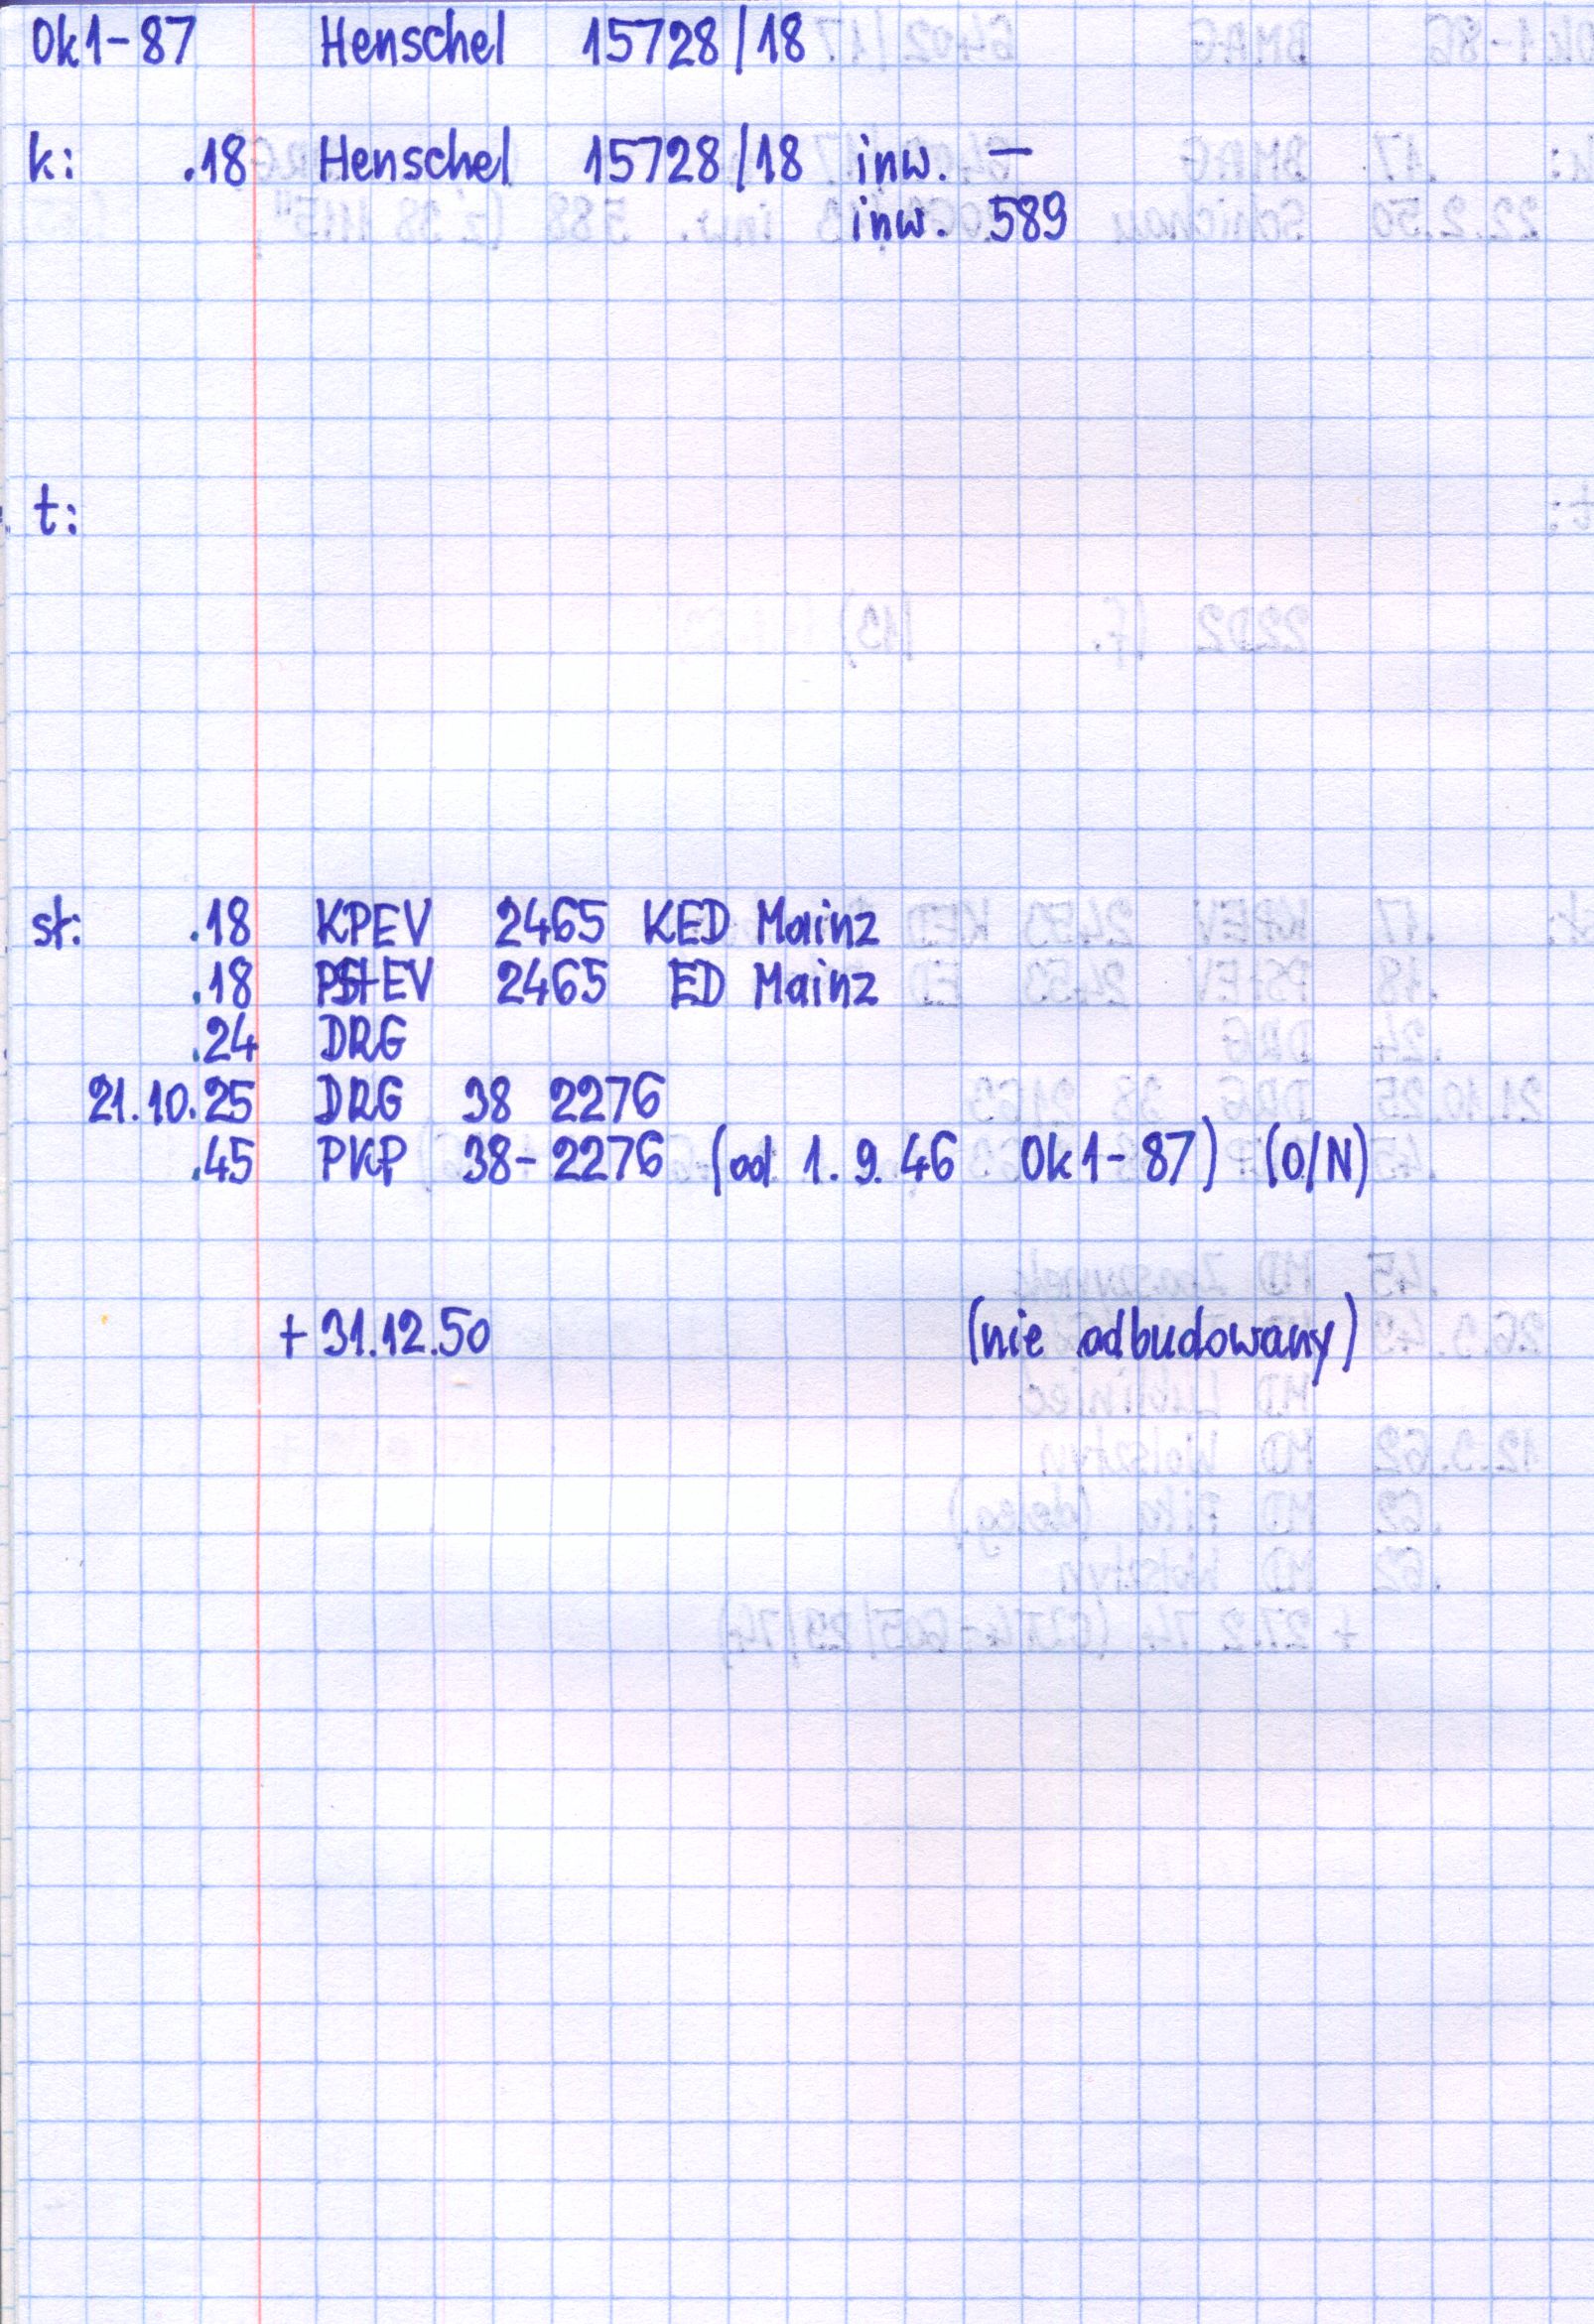 Ok1-87 Henschel 15728/18
k: .18 Henschel 15728/18 inw. —
inw. 589
t:
st: .18 KPEV 2465 KED Mainz
.18 PStEV 2465 ED Mainz
.24 DRG
21.10.25 DRG 38 2276
.45 PKP 38-2276 (od 1.9.46 Ok1-87) (O/N)
+ 31.12.50 (nie odbudowany)